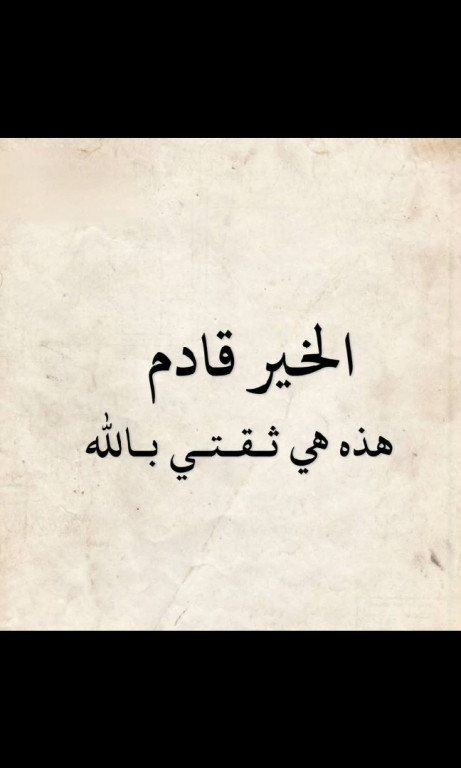 الخير قادم
هذه هي ثـقـتـي بـالله